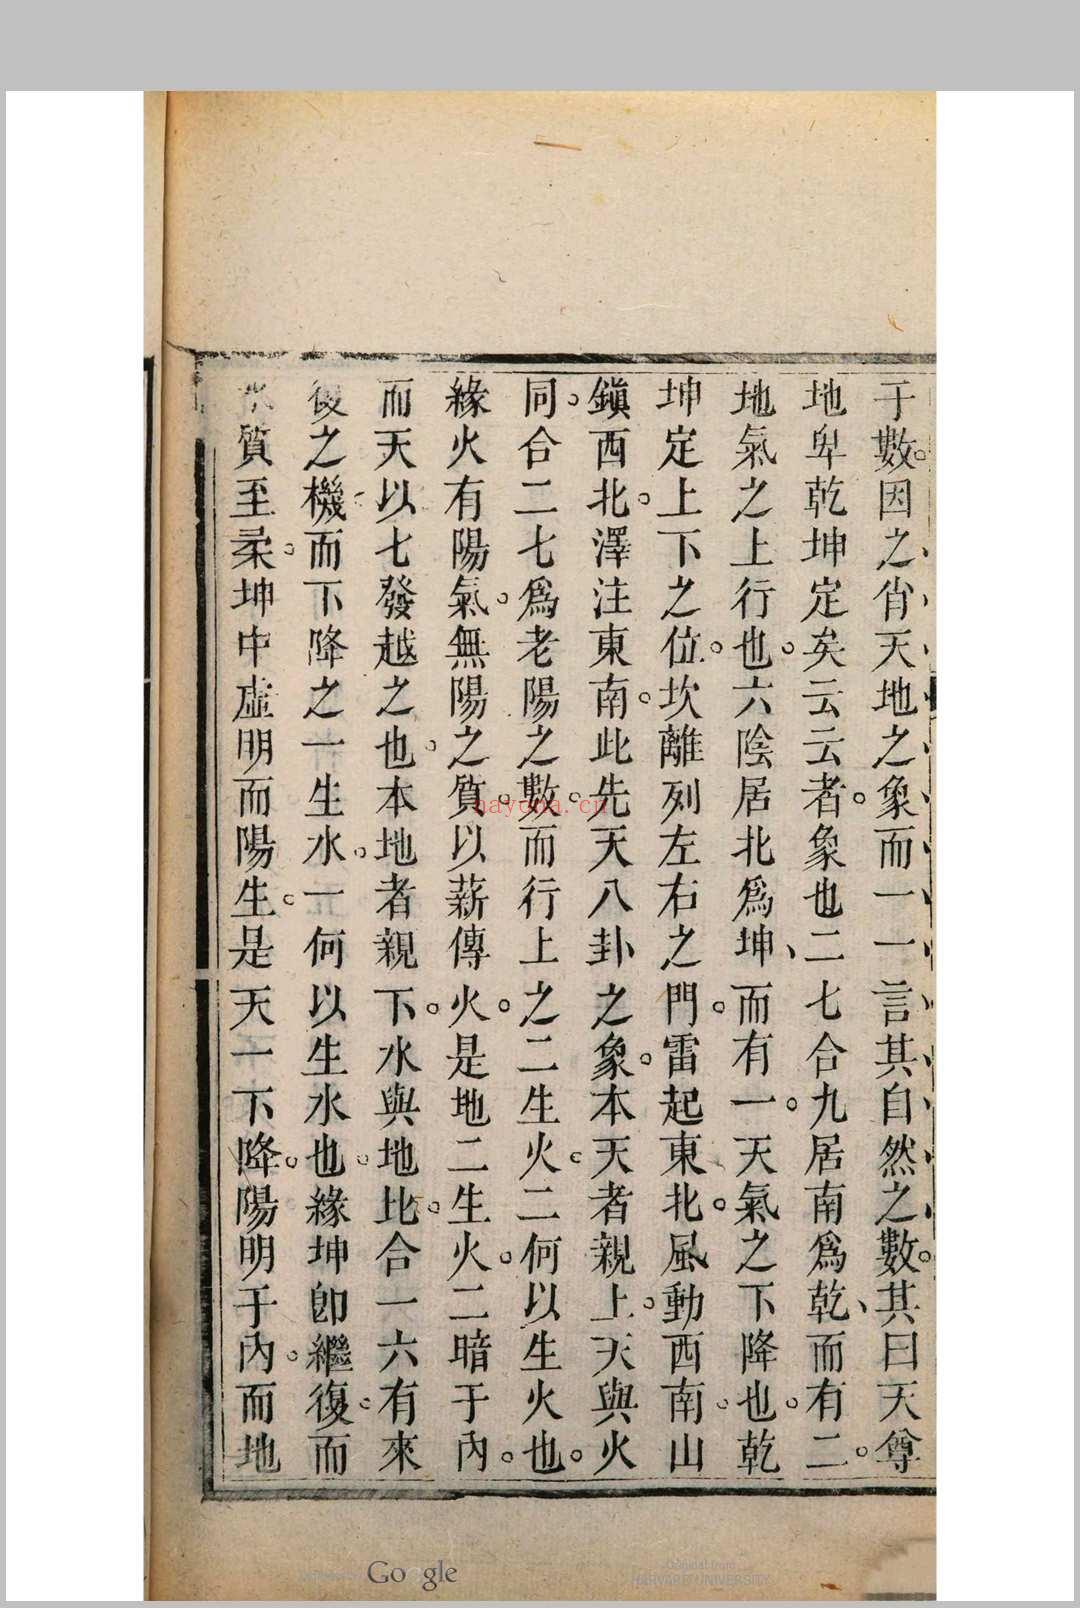 于數因之肖天地之象而一一言其自然之數其曰天尊
地卑乾坤定矣云云者象也二七合九居南爲乾而有二
地氣之上行也六陰居北爲坤而有一天氣之下降也乾
坤定上下之位坎離列左右之門雷起東北風動西南山
鎮西北澤注東南此先天八卦之象本天者親上天與火
同合二七爲老陽之數而行上之二生火二何以生火也
緣火有陽氣無陽之質以薪傳火是地二生火二暗于內
而天以七發越之也本地者親下水與地比合一六有來
復之機而下降之一生水一何以生水也緣坤卽繼復而
水質至柔坤中虛明而陽生是天一下降陽明于內而地
nayona.cn
Google
Original from
HARVARD UNIVERSITY